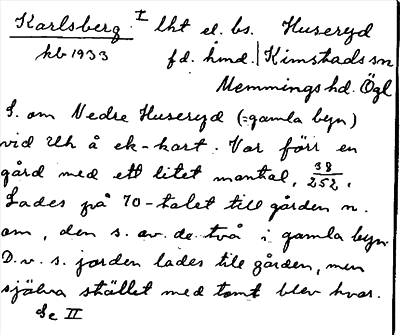 Karlsberg. I lht el. bs. Huseryd
kb 1933 fd. hmd. | Kimstads sn
Memmings hd. Ögl
S. om Nedre Huseryd (= gamla byn)
vid Uh å ek-kart. Var förr en
gård med ett litet mantal, 38/252.
Lades på 70-talet till gården n.
om, den s. av de två i gamla byn
D.v.s. jorden lades till gården, men
själva stället med tomt blev kvar.
Se II